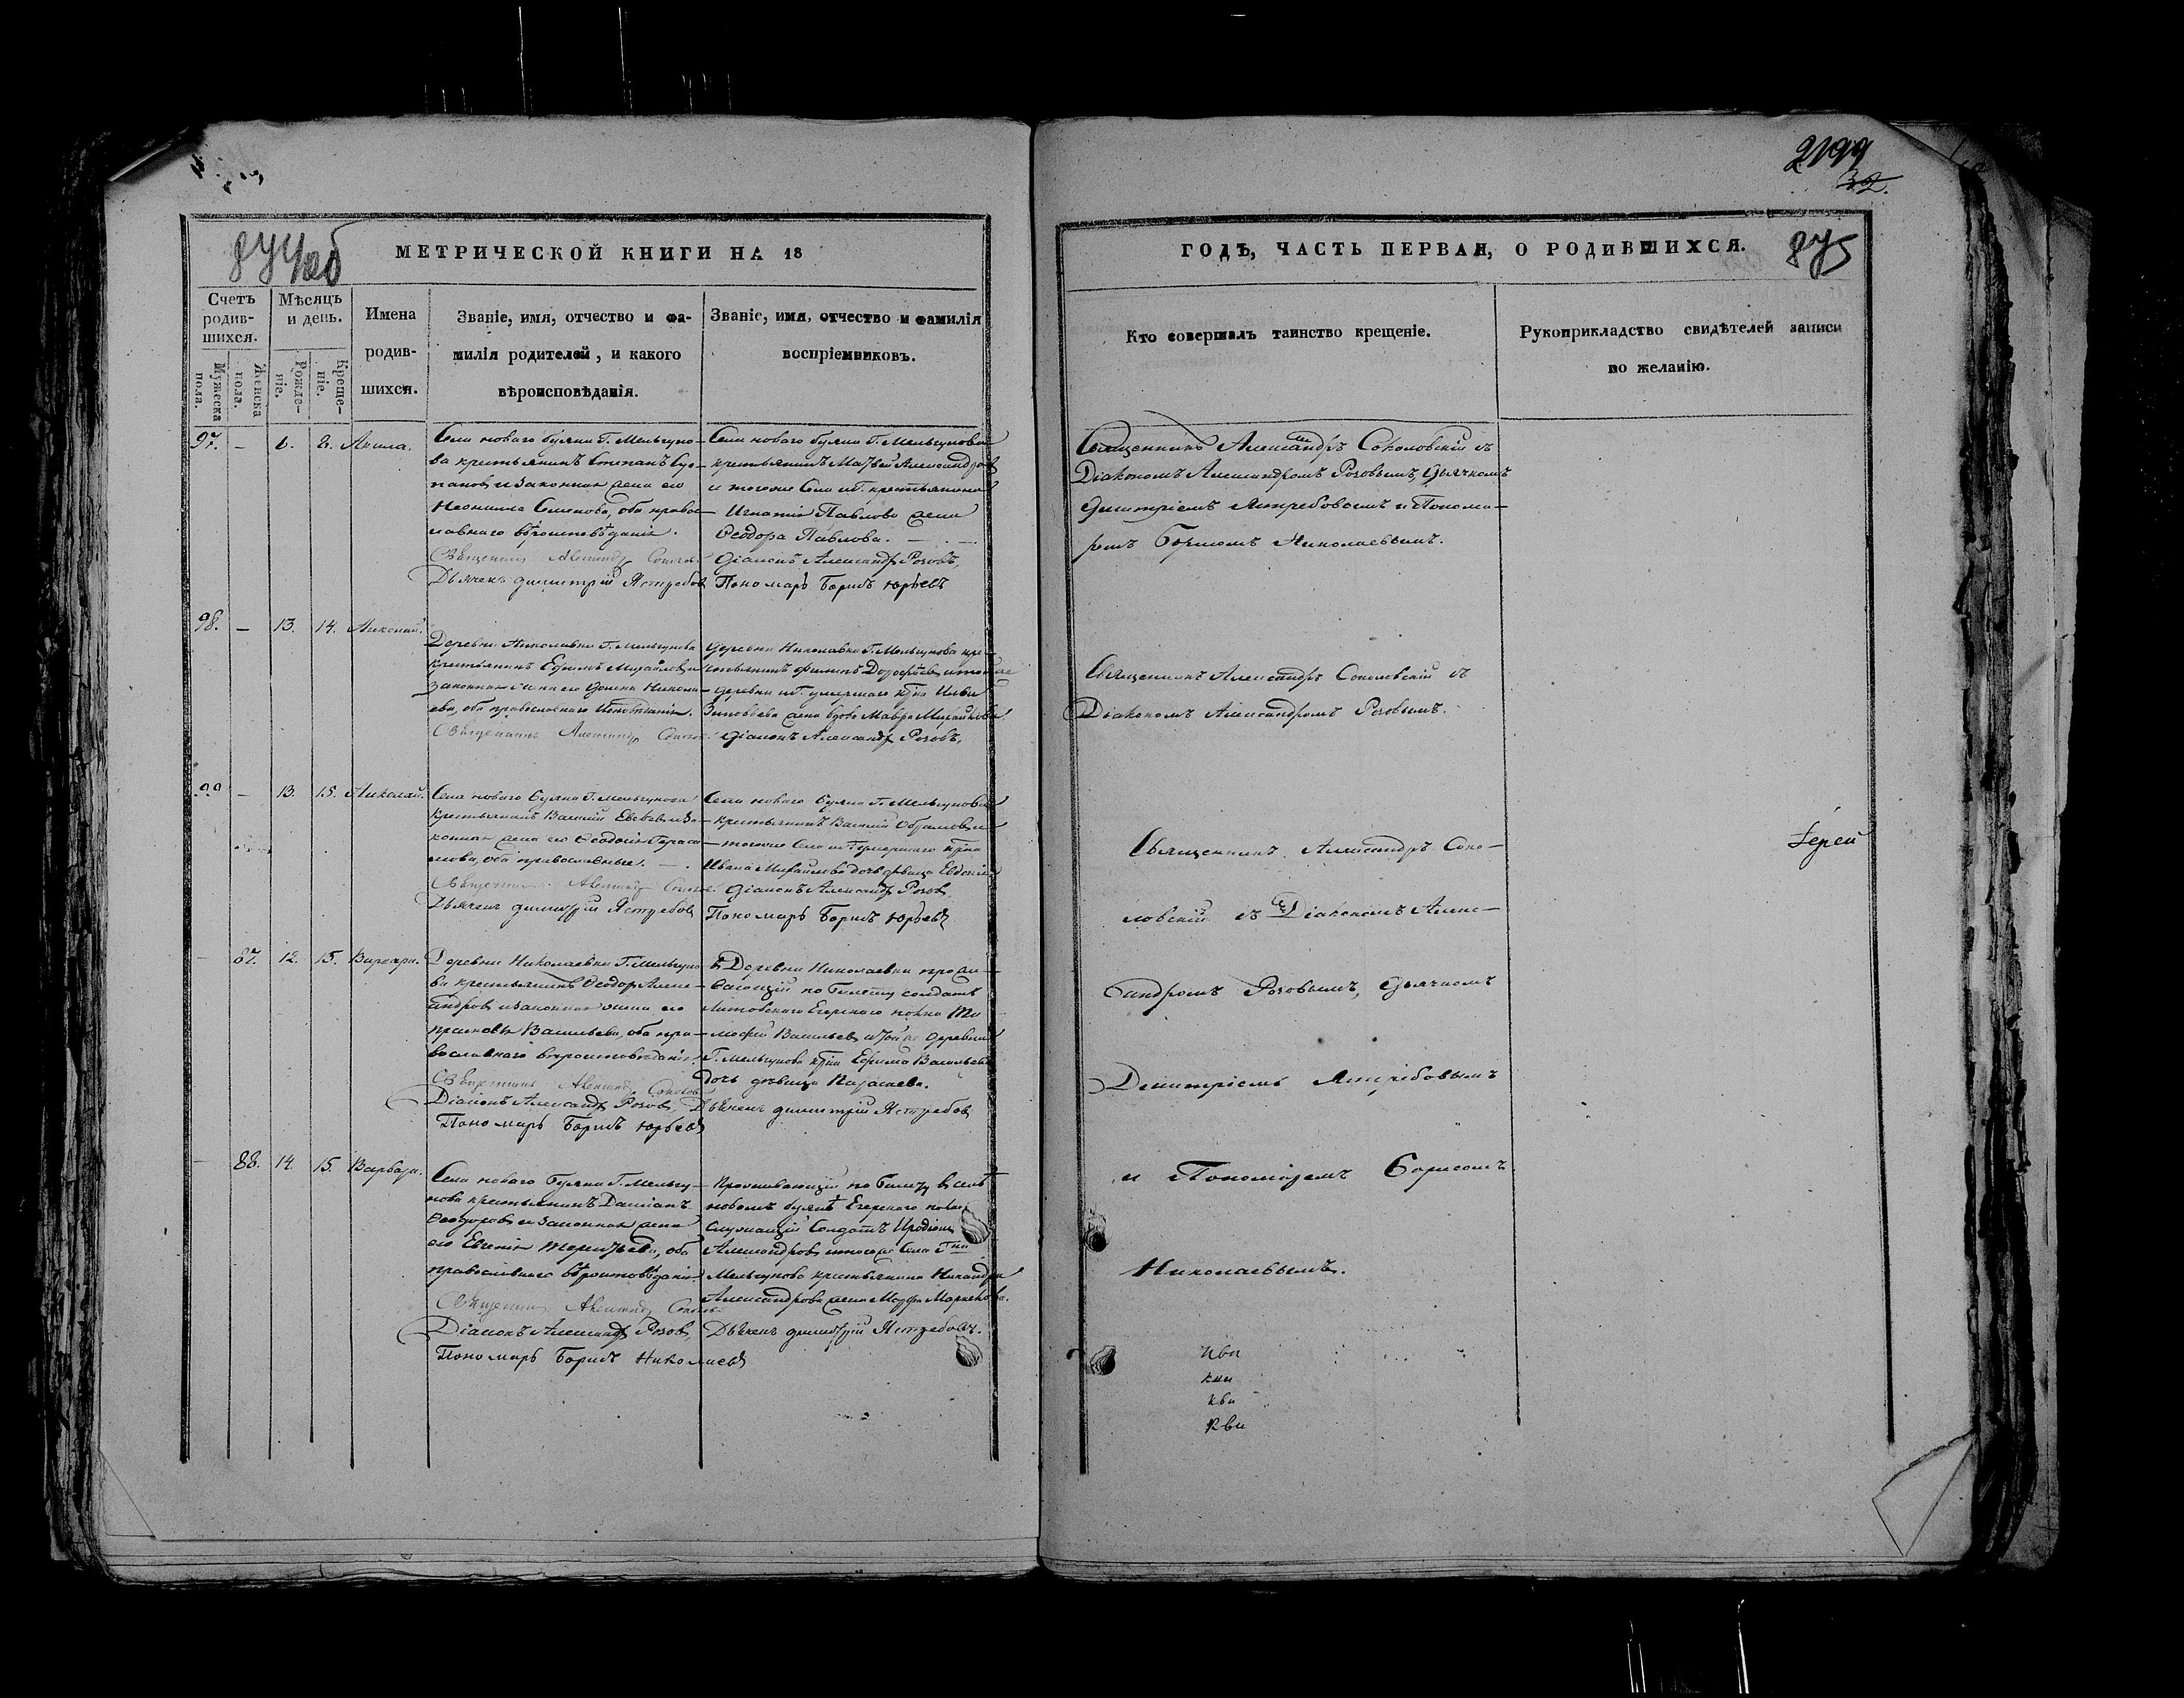 874 об
МЕТРИЧЕСКОЙ КНИГИ НА 18
Счетъ родив-шихся.
Мѣсяцъ и день.
Имена родив-шихся.
Званіе, имя, отчество и фа-
милія родителей, и какого
вѣроисповѣданія.
Званіе, имя, отчество и фамилія
воспріемниковъ.
Мужеска пола.
Женска пола.
Рожде-ніе.
Креще-ніе.
97. — 6. 6. Акила.
Села новаго буяна Г. Мельгуно-
ва крестьянинъ Степанъ
и законная жена его
Неонила Семенова, оба правос-
лавнаго вѣроисповѣданія.
Священникъ Александръ
Дьячекъ Димитрій Ястребовъ
Села новаго буяна Г. Мельгунова
крестьянинъ Матвей Александровъ
и тогоже Села крестьянина
Игнатія Павлова жена
Ѳеодора Павлова.
Діаконъ Александръ Розовъ,
Пономарь Борисъ Юрьевъ
98. — 13. 14.
Деревни Николаевки Г. Мельгунова
крестьянинъ Ефимъ Михайловъ и
законная жена его Домна Никола-
ева, оба православнаго исповѣданія.
Священникъ Александръ
деревни Николаевки Г. Мельгунова кре-
стьянинъ Филипъ Дорофѣевъ и тойже
деревни умершаго Ильи
Зиновьева жена вдова Мавра Михайлова.
Діаконъ Александръ Розовъ,
99 — 13. 15. Николай.
Села новаго буяна Г. Мельгунова
крестьянинъ Василій и за-
конная жена его Ѳеодосія Гераси-
мова, оба православные.
Священникъ Александръ
Дьячекъ Димитрій Ястребовъ
Села новаго буяна Г. Мельгунова
крестьянинъ Василій и
тогоже Села умершаго
Ивана Михайлова дочь дѣвица Евдокія
Діаконъ Александръ Розовъ
Пономарь Борисъ Юрьевъ
— 87. 12. 15. Варвара.
Деревни Николаевки Г. Мельгуно-
ва крестьянинъ Ѳеодоръ Алекс-
андровъ и законная жена его
Васильева, оба пра-
вославнаго вѣроисповѣданія
Священникъ Александръ
Діаконъ Александръ Розовъ,
Пономарь Борисъ Юрьевъ
въ Деревни Николаевки прожи-
вающій по билету солдатъ
Литовскаго Егерскаго полка Ти-
мофей Васильевъ и тойже деревни
Г. Мельгунова Ефима Васильева
дочь дѣвица
Дьячекъ Димитрій Ястребовъ
— 88. 14. 15. Варвара.
Села новаго буяна Г. Мельгу-
нова крестьянинъ Даміанъ
Ѳеодоровъ и законная жена
его Евгенія Терентьева, оба
православнаго вѣроисповѣданія.
Священникъ Александръ
Діаконъ Александръ Розовъ,
Пономарь Борисъ Николаевъ
Проживающій по билету въ селѣ
новомъ буянѣ Егерскаго полка
служащій Солдатъ Иродіонъ
Александровъ и тогоже Села Г-на
Мельгунова крестьянина Никандра
Александрова жена Марѳа
Дьячекъ Димитрій Ястребовъ.
2199
32.
ГОДЪ, ЧАСТЬ ПЕРВАЯ, О РОДИВШИХСЯ.
875
Кто совершалъ таинство крещеніе.
Рукоприкладство свидѣтелей записи
по желанію.
Священникъ Александръ Соколовскій съ
Діакономъ Александромъ Розовымъ, Дьячкомъ
Димитріемъ Ястребовымъ и Понома-
ремъ Борисомъ Николаевымъ.
Священникъ Александръ Соколовскій съ
Діакономъ Александромъ Розовымъ.
Священникъ Александръ Соко-
ловскій съ Діакономъ Алекс-
андромъ Розовымъ, Дьячкомъ
Димитріемъ Ястребовымъ
и Пономаремъ Борисомъ
Николаевымъ.
Іерей